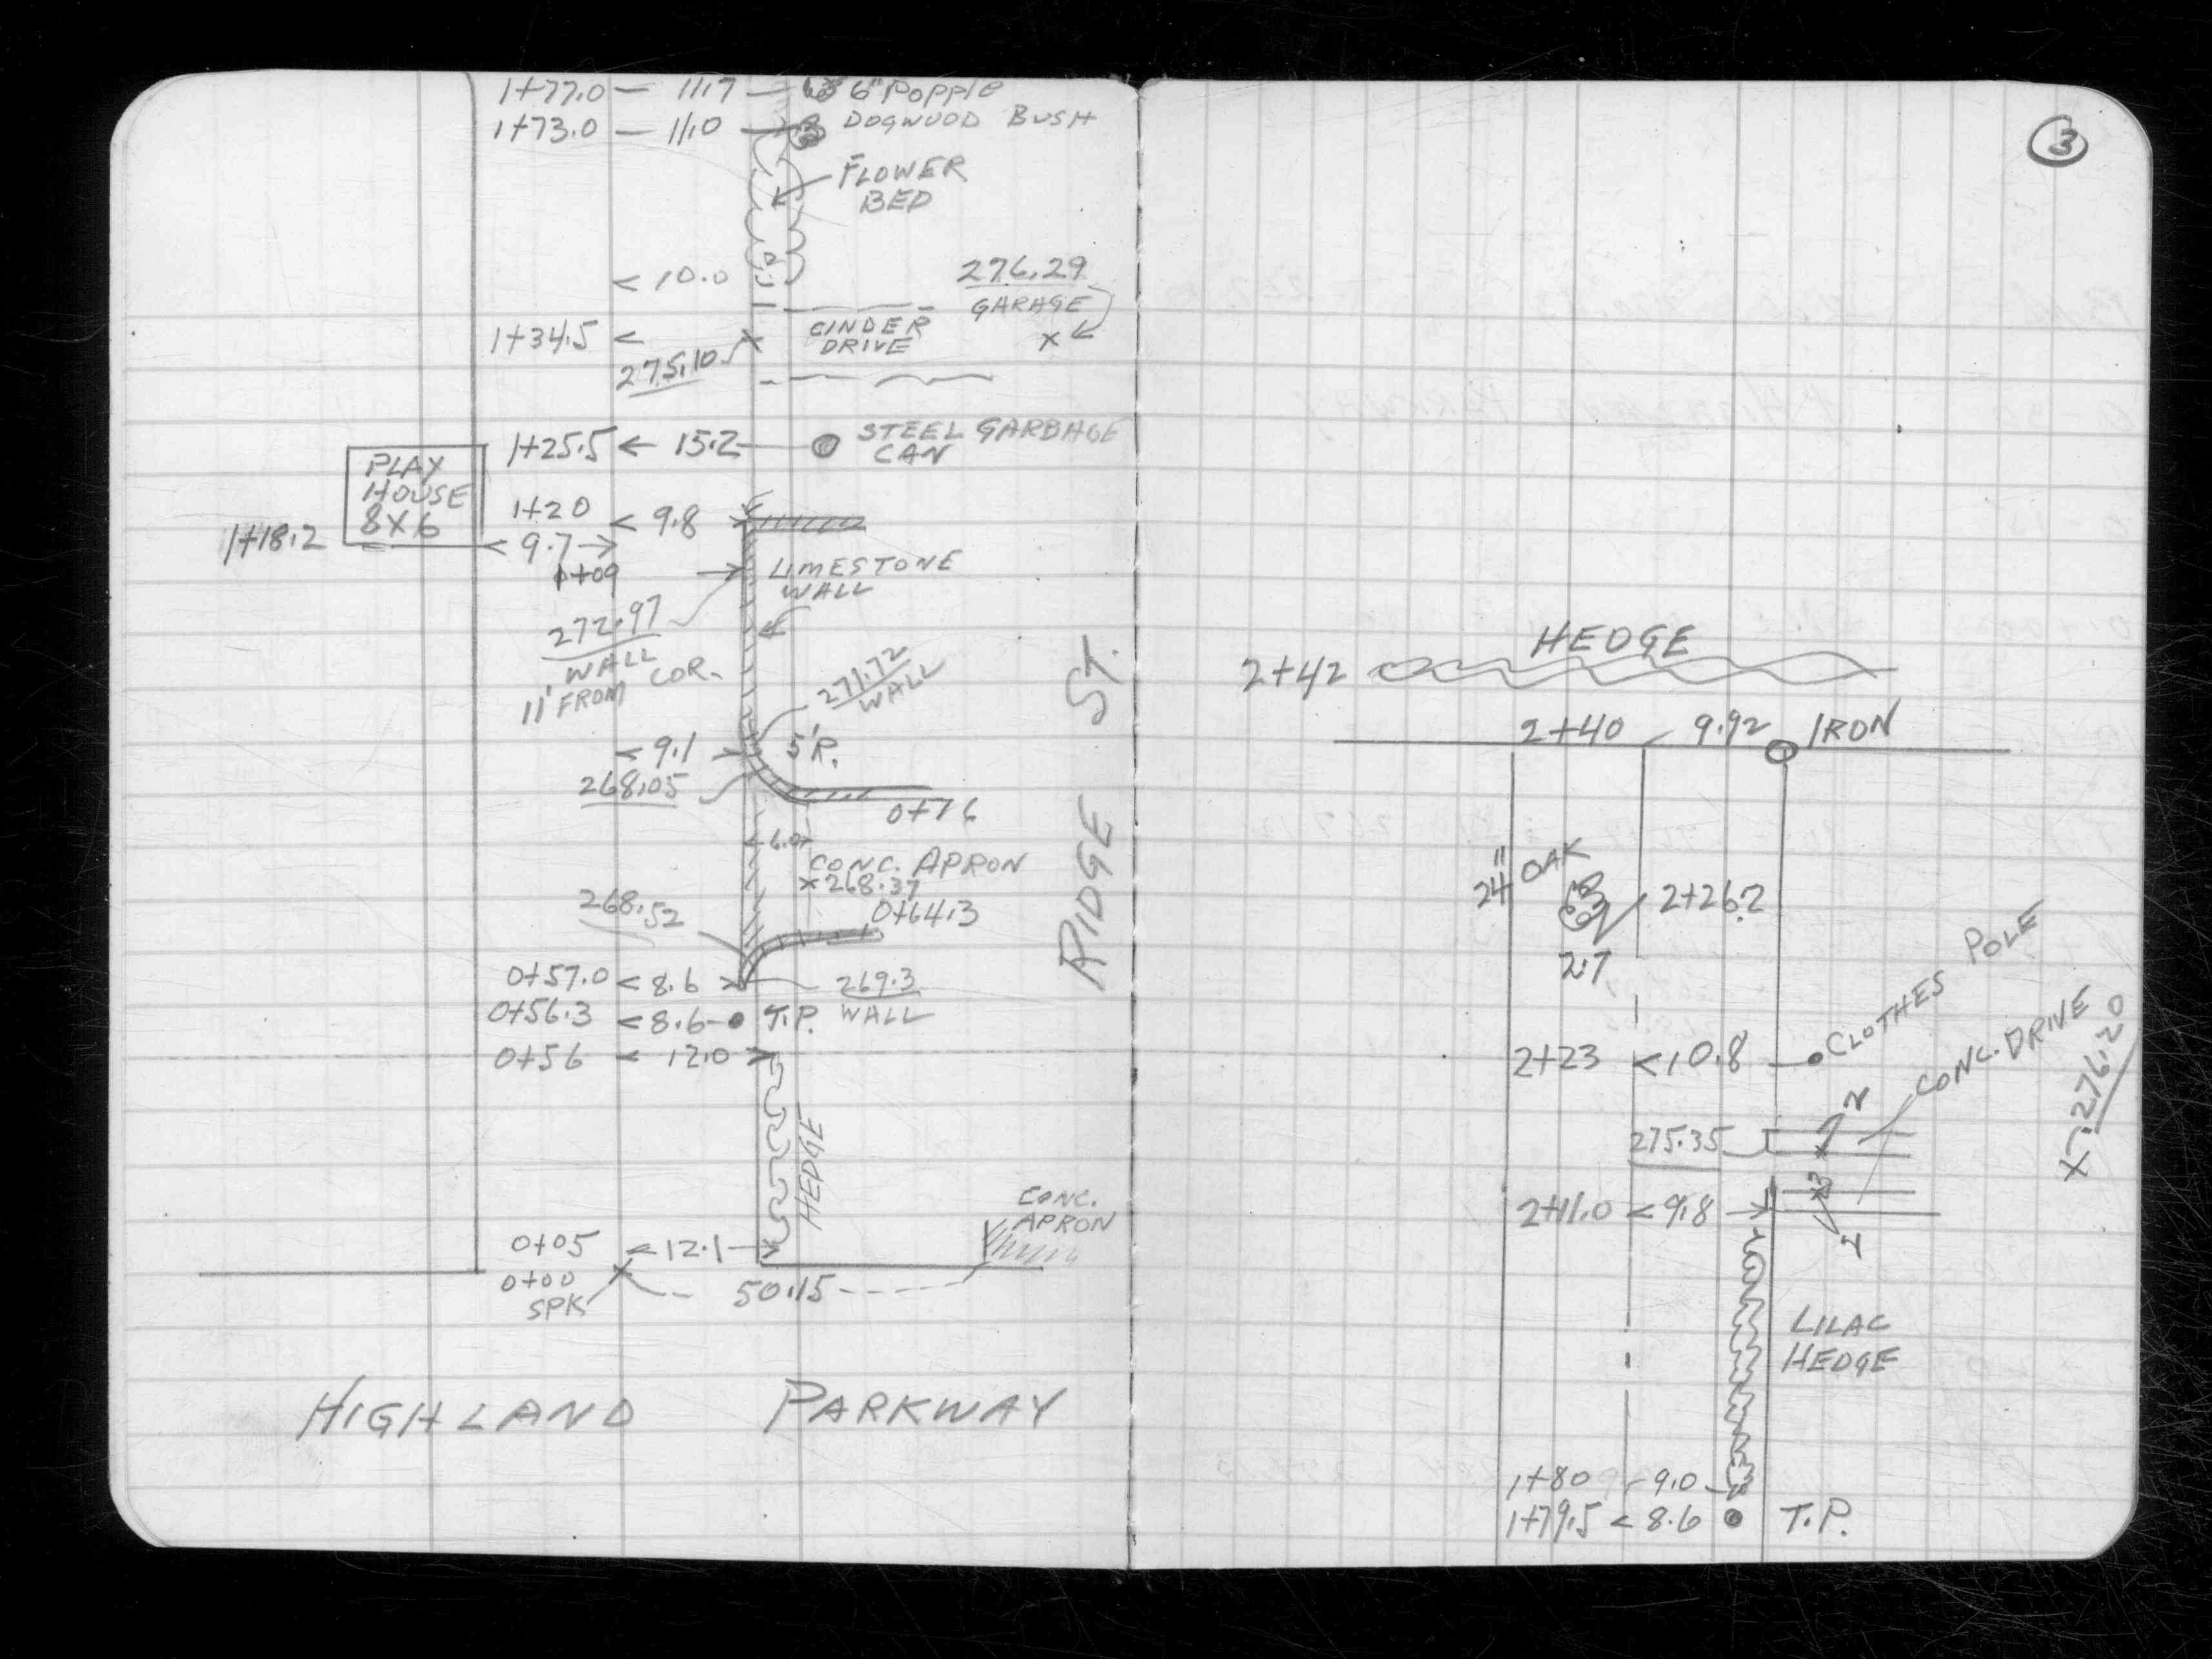 1+77.0 — 11.7 — 6" POPPLE
1+73.0 — 11.0 — DOGWOOD BUSH
FLOWER
BED
< 10.0
276.29
GARAGE
1+34.5 <
CINDER
DRIVE
x
275.10
1+25.5 < 15.2 STEEL GARBAGE
CAN
PLAY
HOUSE
8X6
1+20 < 9.8
1+18.2
< 9.7 >
1+09
LIMESTONE
WALL
272.97
WALL
11' FROM COR.
271.72
WALL
< 9.1 > 5'R.
268.05
0+76
6.0
CONC. APRON
x 268.37
268.52
0+64.3
0+57.0 < 8.6 > 269.3
WALL
0+56.3 < 8.6 T.P.
0+56 < 12.0 >
HEDGE
CONC.
APRON
0+05 < 12.1 >
0+00
SPK
50.15
HIGHLAND PARKWAY
RIDGE ST.
3
HEDGE
2+42
2+40 9.92 IRON
24" OAK
2+26.2
2.7
2+23 < 10.8 CLOTHES POLE
CONC. DRIVE
2
275.35
x 276.20
2+11.0 < 9.8 >
2
LILAC
HEDGE
1+80 9.0
1+79.5 < 8.6 T.P.